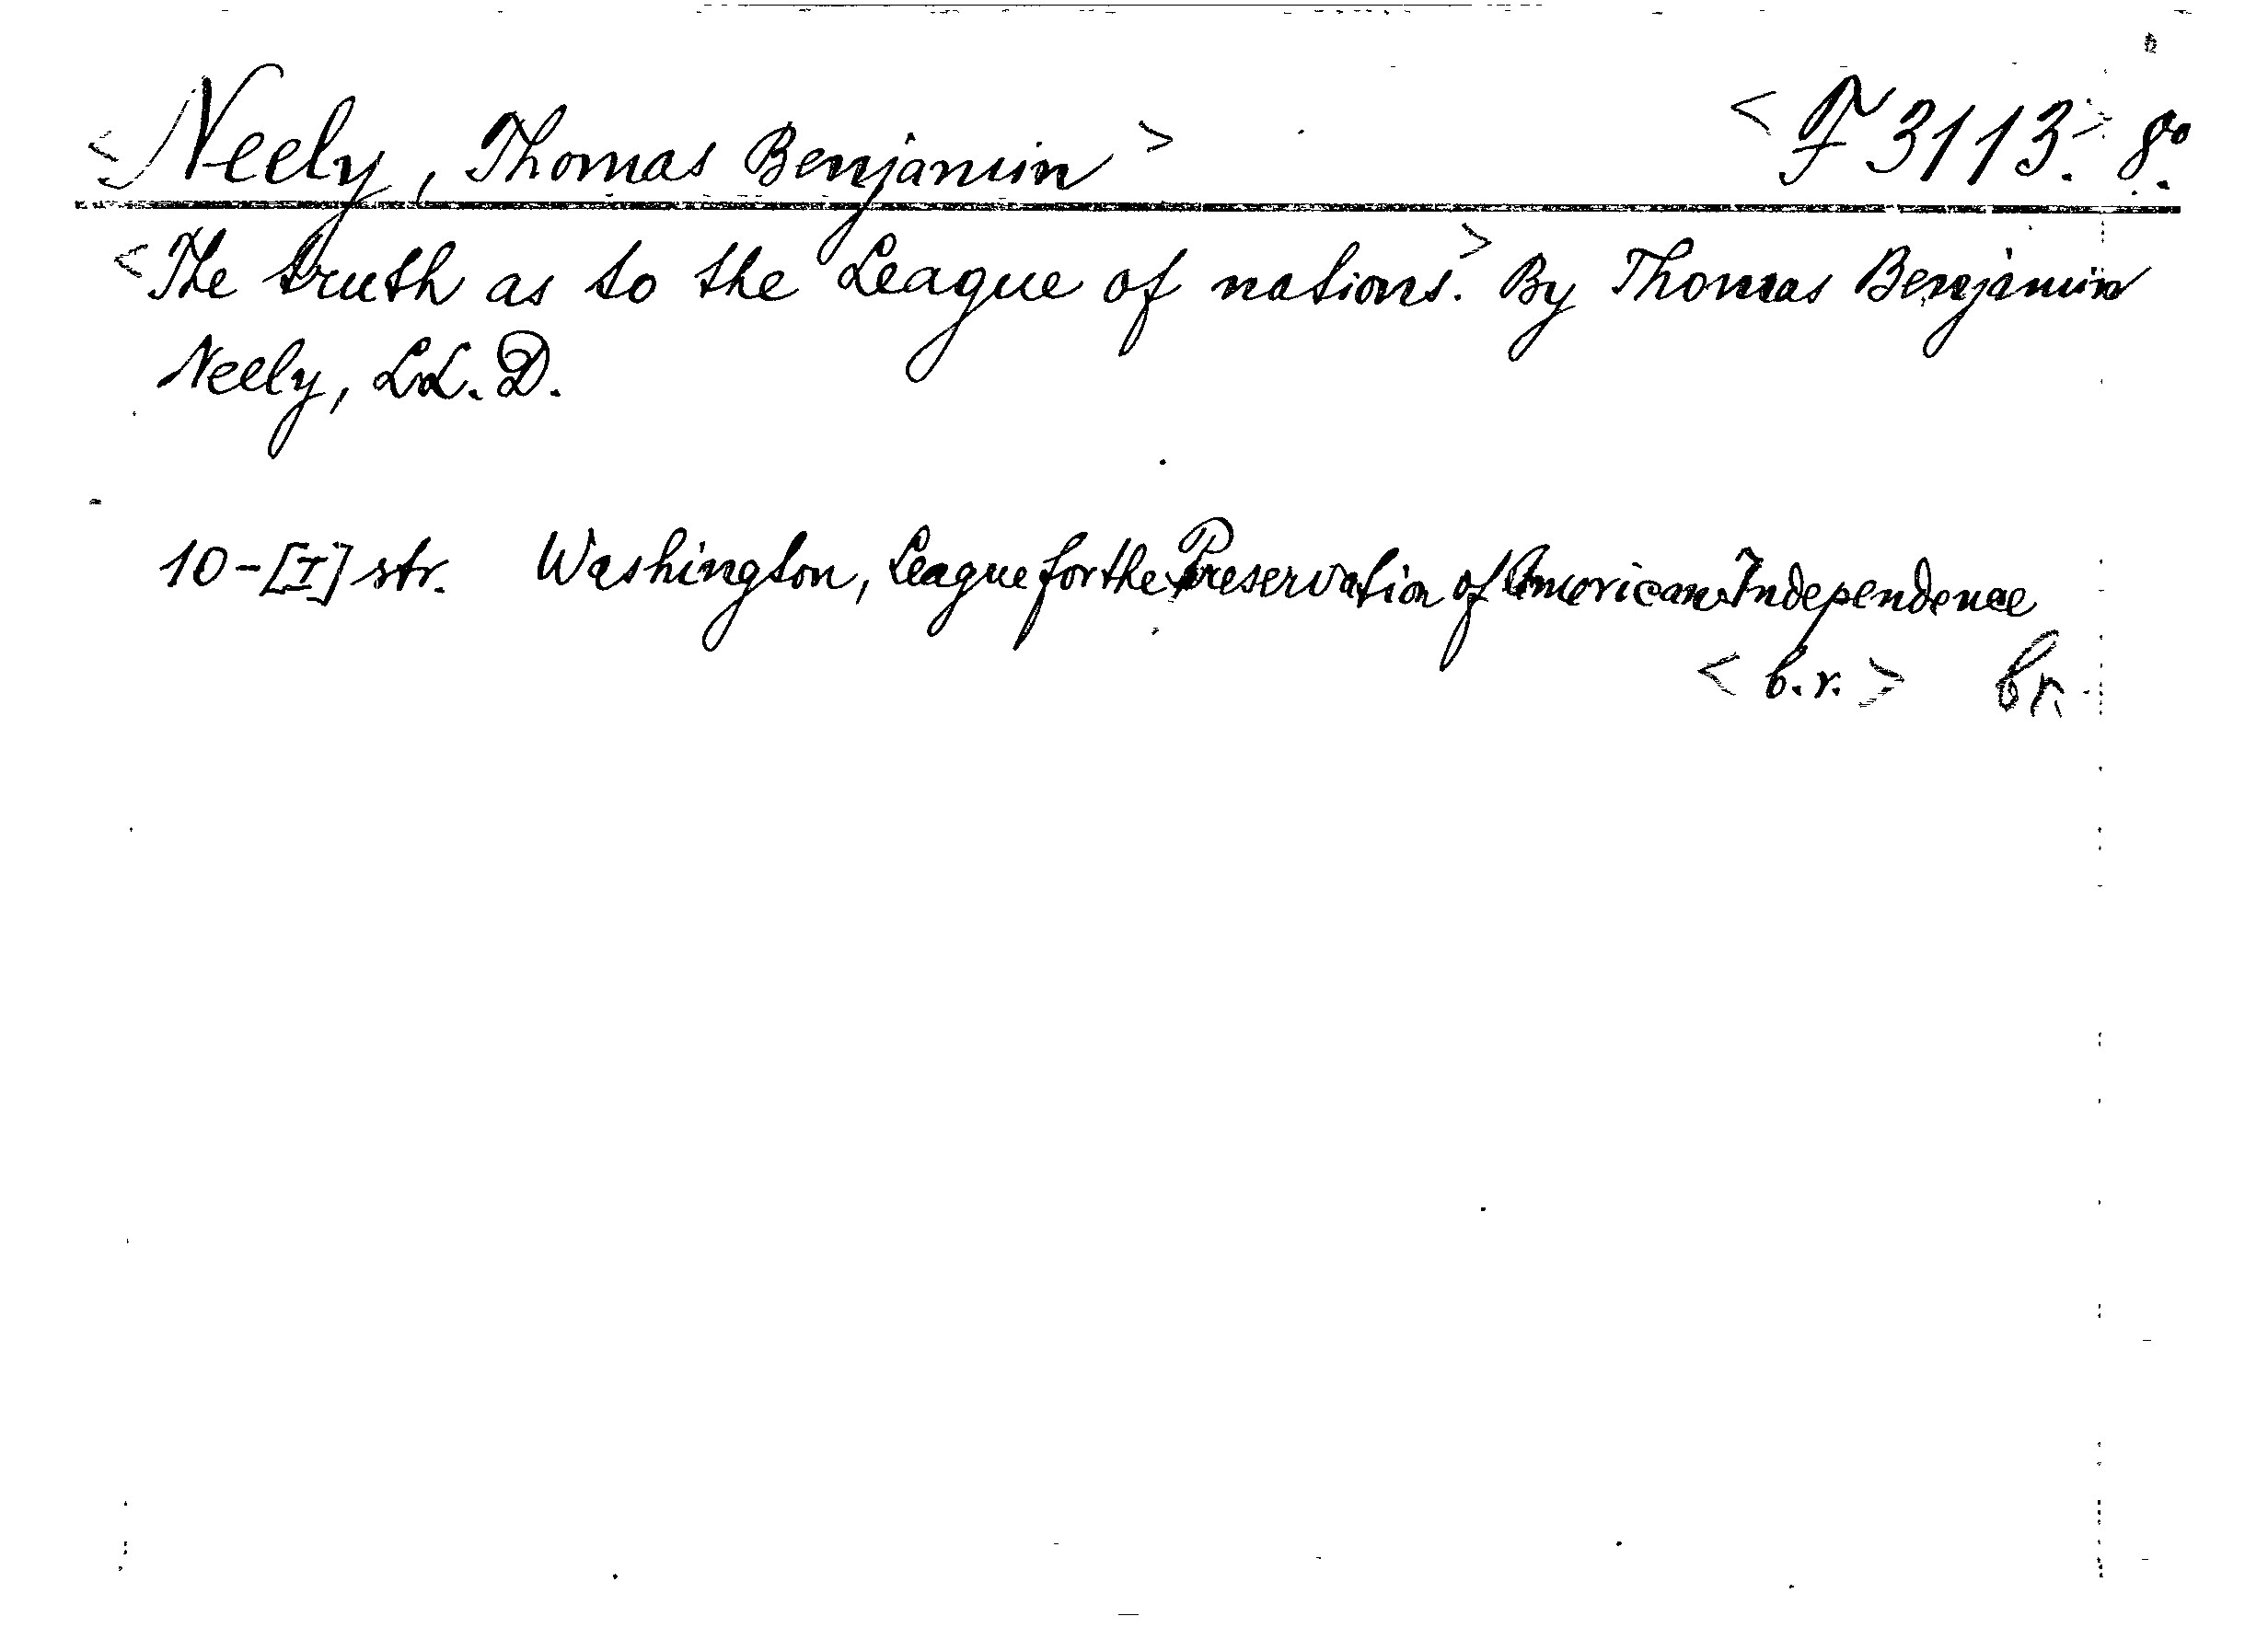 <Neely, Thomas Benjamin> <F 3113.> 8º.
<The truth as to the League of nations.> By Thomas Benjamin
Neely, LL. D.
10-[I] str. Washington, League for the Preservation of American Independence
<b.r.> br.